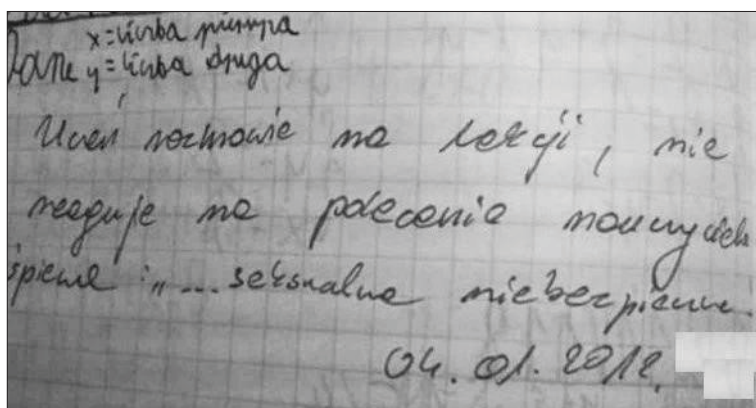 x = liczba pierwsza
Dane y = liczba druga
Uczeń rozmawia na lekcji, nie
reaguje na polecenia nauczyciela
śpiewa: „...seksualna niebezpieczna.
04.01.2012.